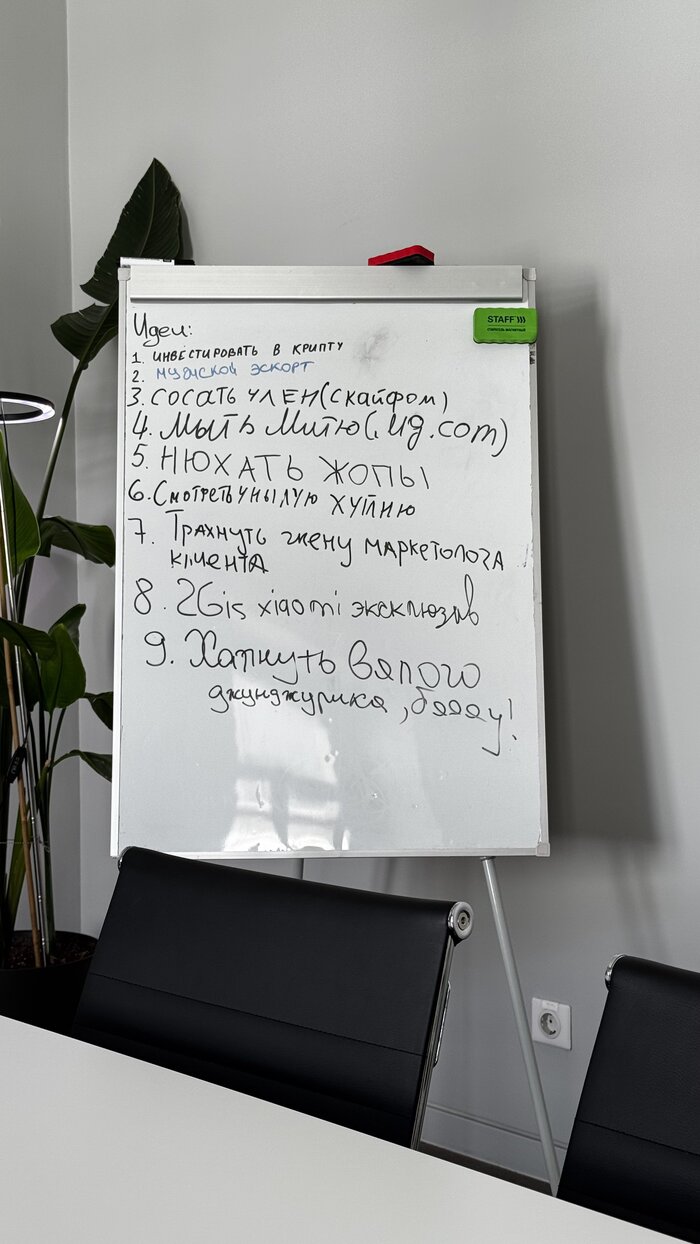 Идеи:
1. ИНВЕСТИРОВАТЬ В КРИПТУ
2. МУЖСКОЙ ЭСКОРТ
3. СОСАТЬ ЧЛЕН (скайфом)
4. Мыть Митю (.ug.com)
5. НЮХАТЬ ЖОПЫ
6. Смотреть унылую хуйню
7. Трахнуть жену маркетолога
клиента
8. 2Gis xiaomi эксклюзив
9. Хапнуть вялого
джунджурика, бяяяу!
STAFF